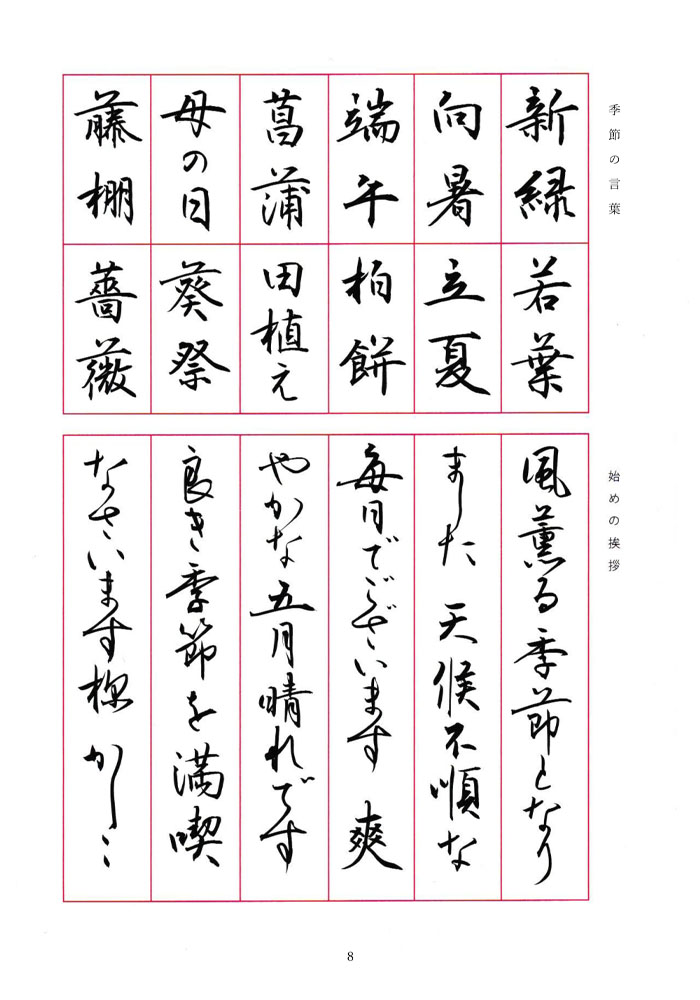 季節の言葉
新緑
向暑
端午
菖蒲
母の日
藤棚
若葉
立夏
柏餅
田植え
葵祭
薔薇
始めの挨拶
風薫る季節となり
ました 天候不順な
毎日でございます 爽
やかな五月晴れです
良き季節を満喫
なさいます様 かしこ
8